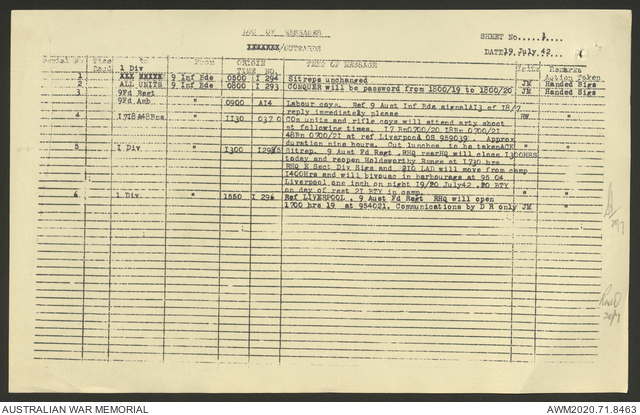 LOG OF MESSAGES
XXXXXXX/OUTWARDS
SHEET No. 1.
DATE 19 July 42.
Serial No. Time Recd. to From ORIGIN TIME NO. TEXT OF MESSAGE Remarks Action Taken
1 Div
1 XXX XXXXX 9 Inf Bde 0500 I 294 Sitreps unchanged JM Handed Sigs
2 ALL UNITS 9 Inf Bde 0800 I 293 CONQUER will be password from 1800/19 to 1800/20 JM Handed Sigs
3 9Fd Regt
9Fd Amb " 0900 AI4 Labour coys. Ref 9 Aust Inf Bde signal AI3 of 18/7
reply immediately please RW " "
4 I7I8A48Bns " II30 037.0 COs units and rifle coys will attend arty shoot
at following times. I7 Bn0700/20 I8Bn 0700/21
48Bn 0700/21 at ref Liverpool 08 959039 . Approx
duration nine hours. Cut lunches to be takenACK " "
5 I Div " I300 I295 Sitrep. 9 Aust Fd Regt .RHQ rearHQ will close I300HRS
today and reopen Holdsworthy Range at I730 hrs
RHQ E Sect Div Sigs and 2I0 LAD will move from camp
I400Hrs and will bivouac in harbourage at 95 04
Liverpool one inch on night I9/20 July42 .20 BTY
on day of rest 2I BTY in camp. " "
6 1 Div " 1550 I 296 Ref LIVERPOOL . 9 Aust Fd Regt RHQ will open
1700 hrs 19 at 954021. Communications by D R only JM "
20/7
AUSTRALIAN WAR MEMORIAL
AWM2020.71.8463